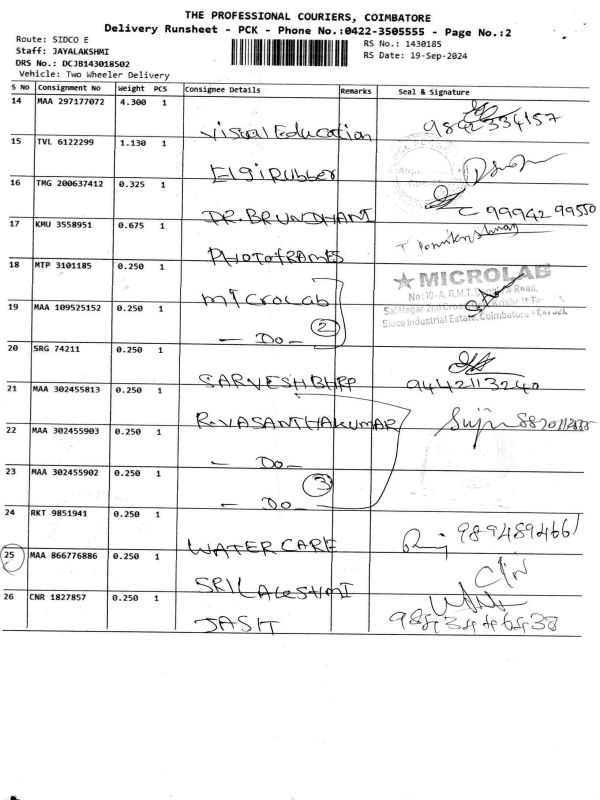 THE PROFESSIONAL COURIERS, COIMBATORE
Delivery Runsheet - PCK - Phone No.:0422-3505555 - Page No.:2
Route: SIDCO E
RS No.: 1430185
Staff: JAYALAKSHMI
RS Date: 19-Sep-2024
DRS No.: DCJB143018502
Vehicle: Two Wheeler Delivery
S No Consignment No Weight PCS Consignee Details Remarks Seal & Signature
14 MAA 297177072 4.300 1
Visual Education 9842334157
15 TVL 6122299 1.130 1
Elgi Rubber
16 TMG 200637412 0.325 1
DR. BRUNDHANI C 99942 99550
17 KMU 3558951 0.675 1
PHOTOFRAMES
18 MTP 3101185 0.250 1
microlab
★ MICROLAB
No:10-A, R.M.T. Road,
19 MAA 109525152 0.250 1
Sai Nagar 2nd Cross
Sidco Industrial Estate, Coimbatore
- Do - 2
20 SRG 74211 0.250 1
SARVESH BHRP 9442113240
21 MAA 302455813 0.250 1
R. VASANTHAKUMAR
22 MAA 302455903 0.250 1
- Do -
23 MAA 302455902 0.250 1
- Do - 3
24 RKT 9851941 0.250 1
WATER CARE 9894894661
25 MAA 866776886 0.250 1
SRI LAKSHMI
26 CNR 1827857 0.250 1
JASIT